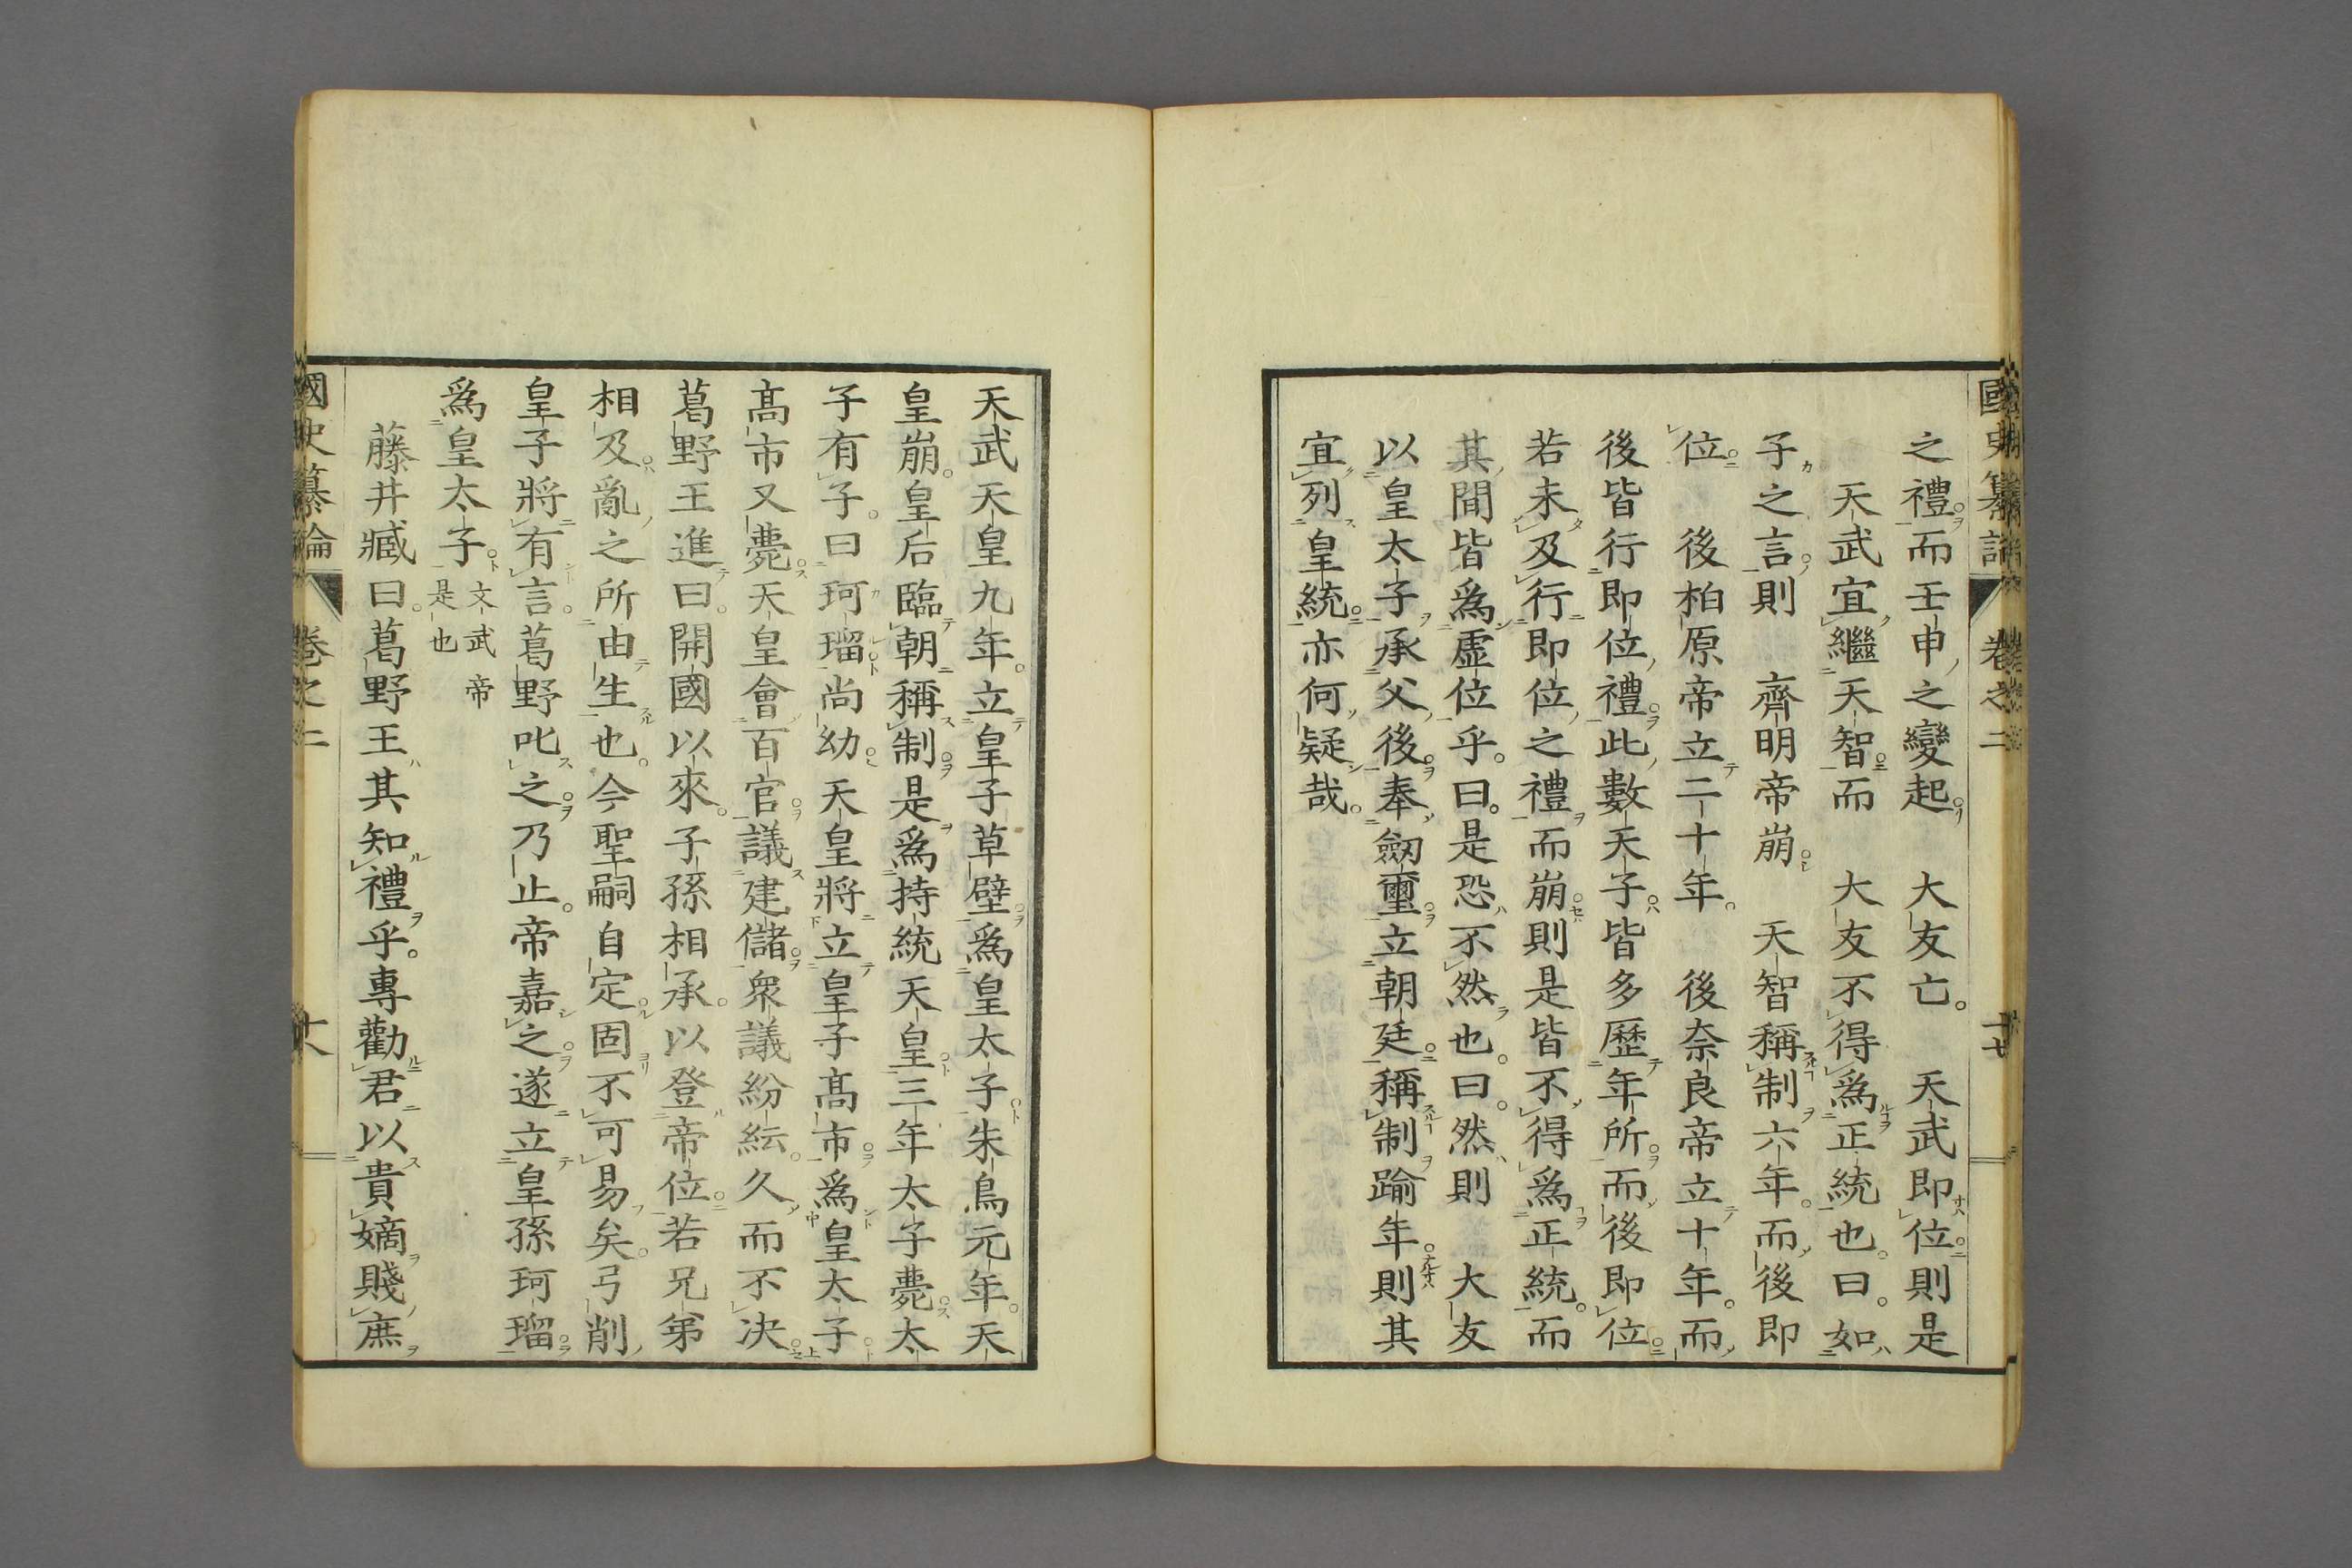 國史纂論 卷之二 十七
之禮而壬申之變起 大友亡 天武即位則是
天武宜繼天智而 大友不得爲正統也曰如
子之言則 齊明帝崩 天智稱制六年而後即
位 後柏原帝立二十年 後奈良帝立十年而
後皆行即位禮此數天子皆多歷年所而後即位
若未及行即位之禮而崩則是皆不得爲正統而
其間皆爲虛位乎曰是恐不然也曰然則 大友
以皇太子承父後奉劔璽立朝廷稱制踰年則其
宜列皇統亦何疑哉
天武天皇九年立皇子草壁爲皇太子朱鳥元年天
皇崩皇后臨朝稱制是爲持統天皇三年太子薨太
子有子曰珂瑠尚幼天皇將立皇子髙市爲皇太子
髙市又薨天皇會百官議建儲衆議紛紜久而不决
葛野王進曰開國以來子孫相承以登帝位若兄弟
相及亂之所由生也今聖嗣自定固不可易矣弓削
皇子將有言葛野叱之乃止帝嘉之遂立皇孫珂瑠
爲皇太子文武帝是也
藤井臧曰葛野王其知禮乎專勸君以貴嫡賤庶
國史纂論 卷之二 十八